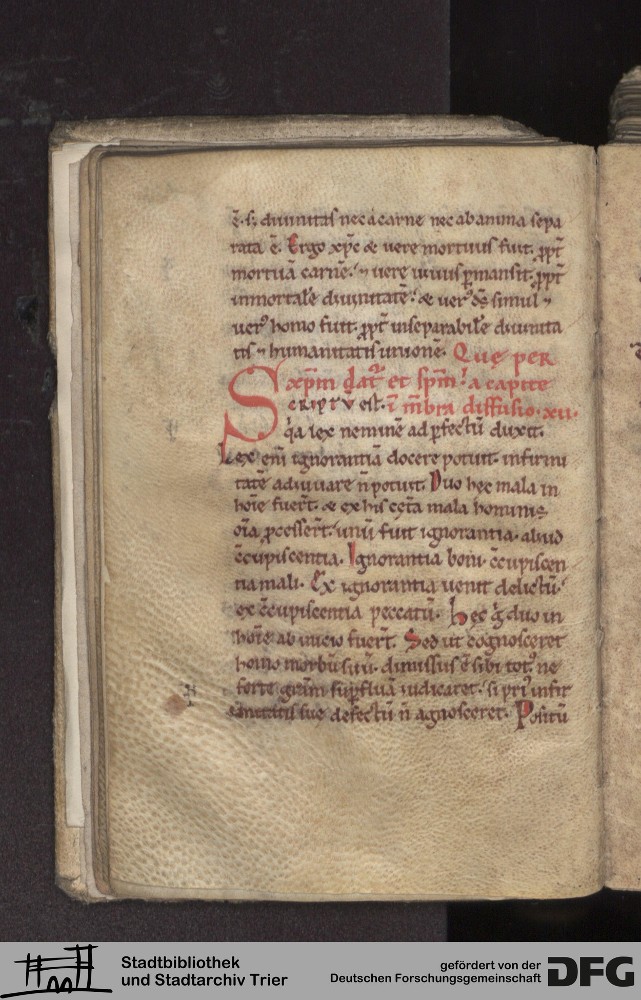 ē. s; diuinitas nec a carne nec ab anima sepa
rata ē. Ergo xp̄c & uere mortuus fuit. ꝓpt̄
mortuā carnē. ⁊ uere uiuus ꝑmansit. ꝓpt̄
inmortalē diuinitatē. & uerꝰ ds̄ simul ⁊
uerꝰ homo fuit. ꝓpt̄ inseparabilē diuinita
tis ⁊ humanitatis unionē. Que per
xp̄m datᷣ et sp̄m. a capite
Scriptū est. ī mb̄ra diffusio. xii.
q̇a lex neminē ad ꝑfectū duxit.
Lex eni ignorantiā docere potuit. infirmi
tatē adiuuare n̄ potuit. Duo hec mala in
hoīe fuer̄t. & ex his cet̄a mala hominis
oīa ꝓcesser̄t. unū fuit ignorantia. aliud
c̄cupiscentia. Ignorantia boni. c̄cupiscen
tia mali. Ex ignorantia uenit delictū.
ex c̄cupiscentia peccatū. Hec g̊ duo in
hoīe ab inicio fuer̄t. Sed ut cognosceret
homo morbū suū. dimissus ē sibi totꝰ. ne
forte gr̄am suꝑfluā iudicaret. si priꝰ infir
mitatis sue defectū n̄ agnosceret. Positū
Stadtbibliothek
und Stadtarchiv Trier
gefördert von der
Deutschen Forschungsgemeinschaft
DFG